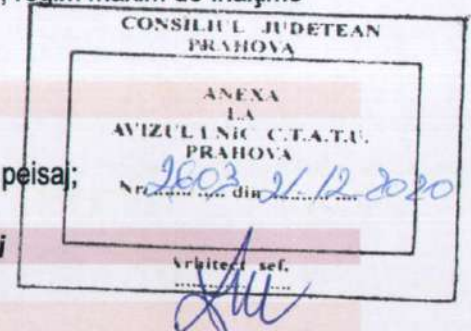 CONSILIUL JUDETEAN
PRAHOVA
ANEXA
LA
AVIZUL UNIC C.T.A.T.U.
PRAHOVA
peisaj;
Nr. 2603 din 21-12 2020
Arhitect sef,